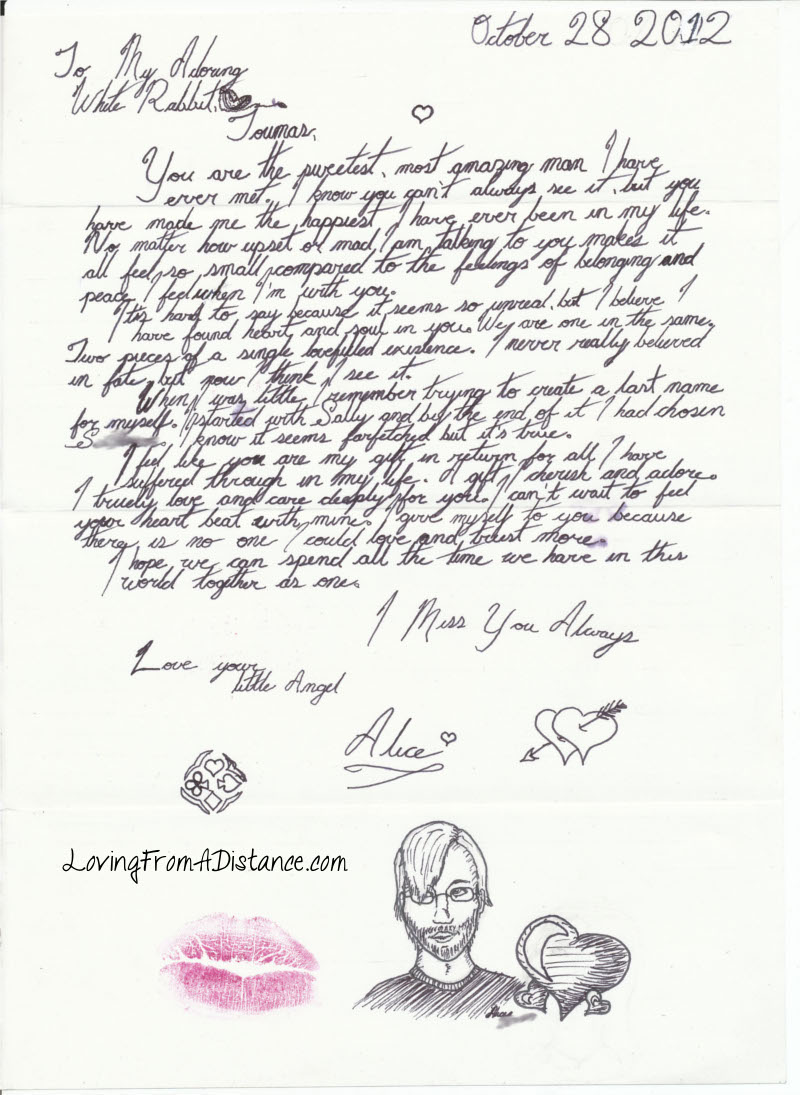 October 28 2012
To My Adoring
White Rabbit,
Toumas,
You are the sweetest, most amazing man I have
ever met, I know you can't always see it, but you
have made me the happiest I have ever been in my life.
No matter how upset or mad I am, talking to you makes it
all feel so small compared to the feelings of belonging and
peace I feel when I'm with you.
It's hard to say because it seems so unreal, but I believe I
have found heart and soul in you. We are one in the same.
Two pieces of a single lovefilled existence. I never really believed
in fate, but now I think I see it.
When I was little, I remember trying to create a last name
for myself. I started with Sally and by the end of it I had chosen
S
I know it seems farfetched but it's true.
I feel like you are my gift in return for all I have
suffered through in my life. A gift I cherish and adore.
I truely love and care deeply for you. I can't wait to feel
your heart beat with mine. I give myself to you because
there is no one I could love and trust more.
I hope we can spend all the time we have in this
world together as one.
I Miss You Always
Love your
little Angel
Alice
LovingFromADistance.com